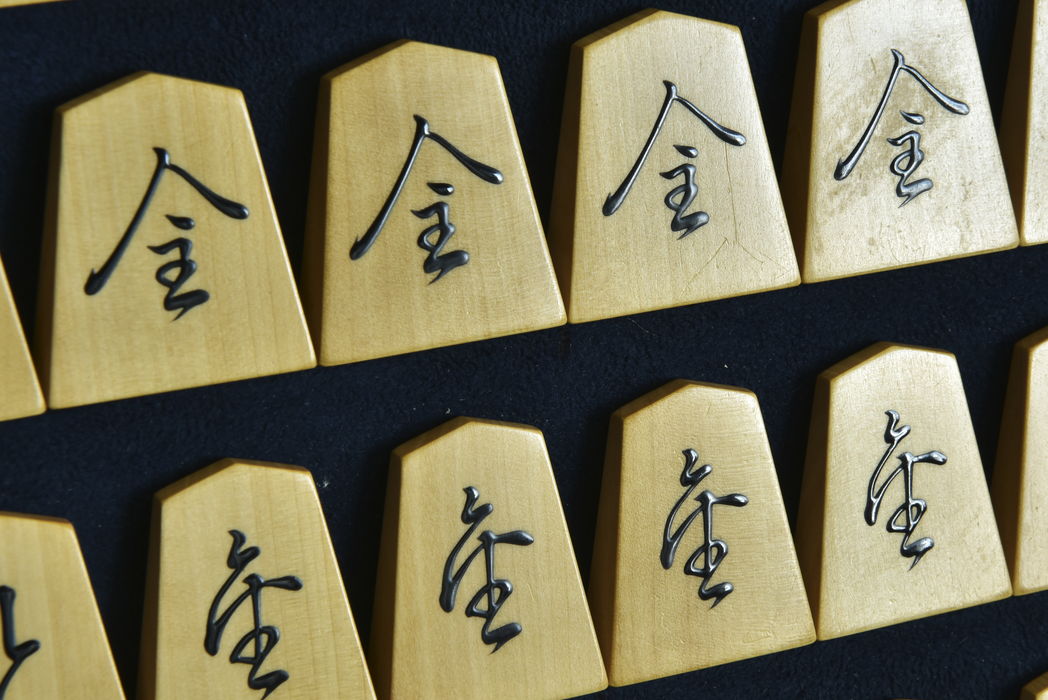 金 金 金 金
金 金 金 金